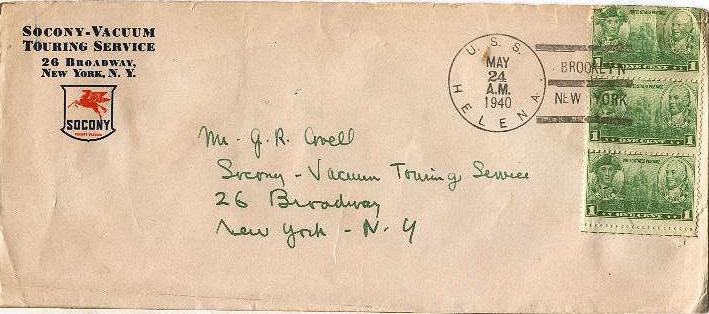 SOCONY-VACUUM
TOURING SERVICE
26 BROADWAY,
NEW YORK, N. Y.
SOCONY
U. S. S. HELENA.
MAY
24
A.M.
1940
BROOKLYN
NEW YORK
1 ONE CENT 1
1 ONE CENT 1
1 ONE CENT 1
Mr. G. R. Covell
Socony - Vacuum Touring Service
26 Broadway
New York - N. Y